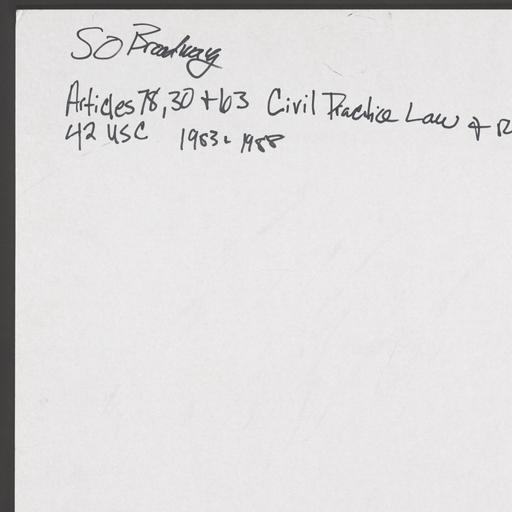 50 Broadway
Articles 78, 30 + 63 Civil Practice Law + R
42 USC 1983 & 1988